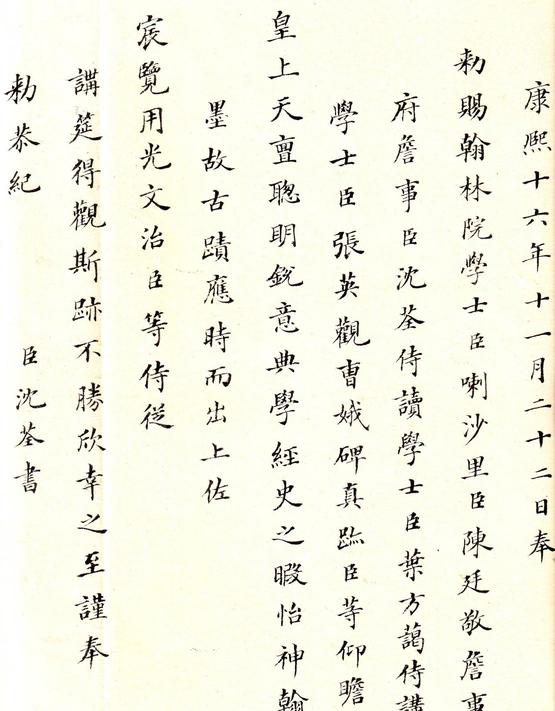 康熙十六年十一月二十二日奉
勅賜翰林院學士臣喇沙里臣陳廷敬詹事
府詹事臣沈荃侍讀學士臣葉方藹侍講
學士臣張英觀曹娥碑真跡臣等仰瞻
皇上天亶聰明銳意典學經史之暇怡神翰
墨故古蹟應時而出上佐
宸覽用光文治臣等侍従
講筵得觀斯跡不勝欣幸之至謹奉
勅恭紀 臣沈荃書